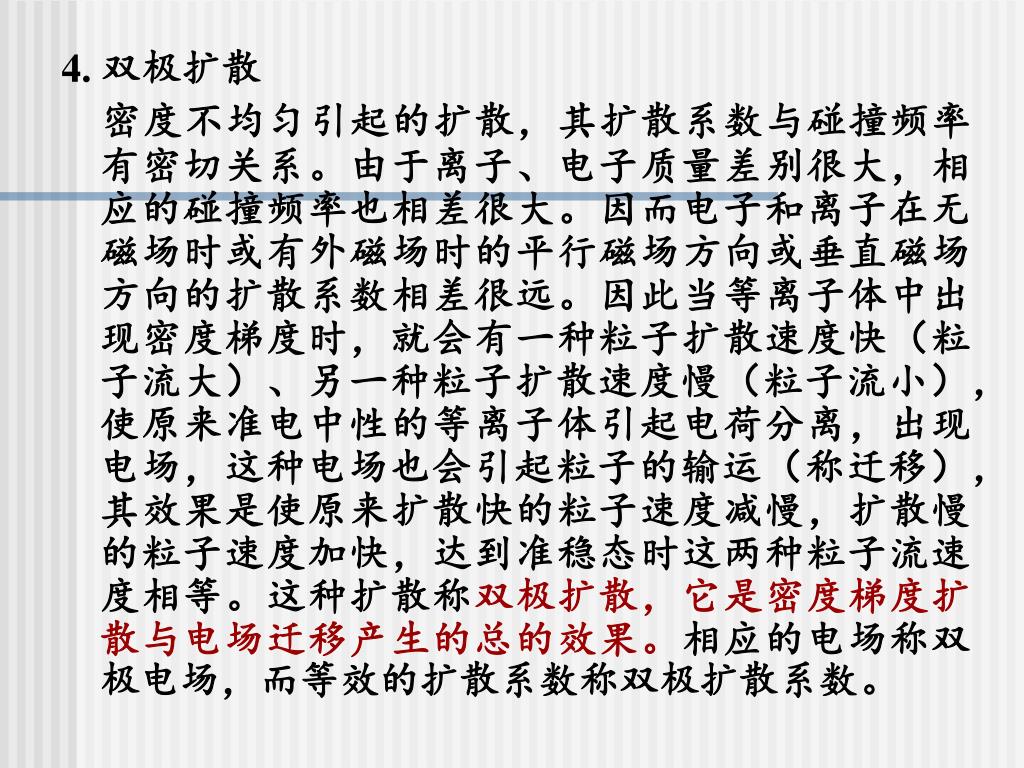 4. 双极扩散
密度不均匀引起的扩散，其扩散系数与碰撞频率
有密切关系。由于离子、电子质量差别很大，相
应的碰撞频率也相差很大。因而电子和离子在无
磁场时或有外磁场时的平行磁场方向或垂直磁场
方向的扩散系数相差很远。因此当等离子体中出
现密度梯度时，就会有一种粒子扩散速度快（粒
子流大）、另一种粒子扩散速度慢（粒子流小），
使原来准电中性的等离子体引起电荷分离，出现
电场，这种电场也会引起粒子的输运（称迁移），
其效果是使原来扩散快的粒子速度减慢，扩散慢
的粒子速度加快，达到准稳态时这两种粒子流速
度相等。这种扩散称双极扩散，它是密度梯度扩
散与电场迁移产生的总的效果。相应的电场称双
极电场，而等效的扩散系数称双极扩散系数。